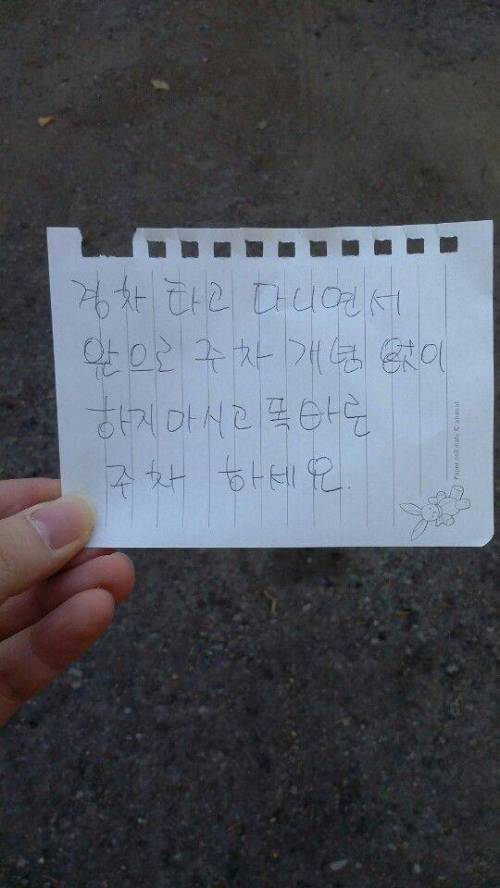 경차 타고 다니면서
앞으로 주차 개념 없이
하지마시고 똑바로
주차 하세요.